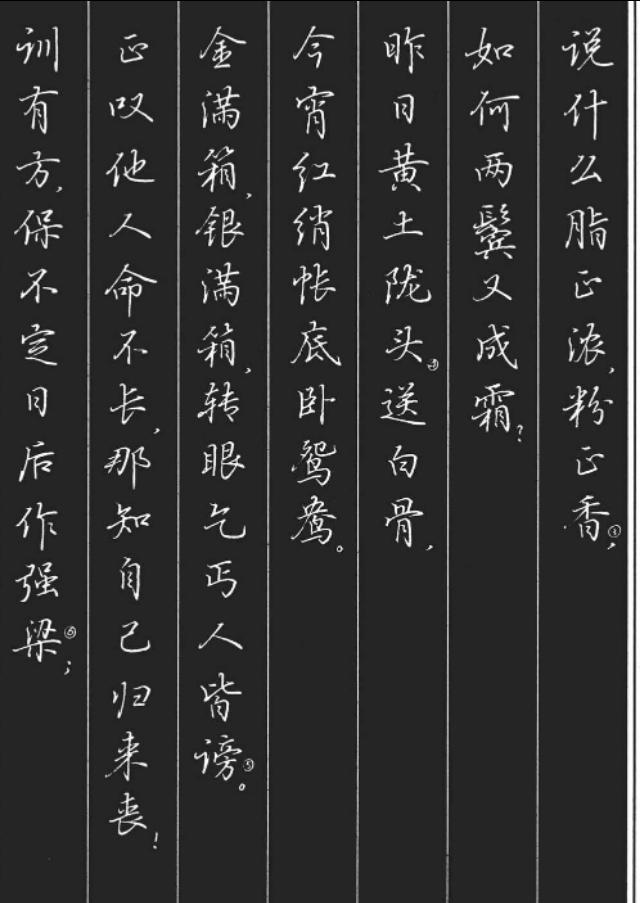 说什么脂正浓,粉正香③,
如何两鬓又成霜?
昨日黄土陇头④送白骨,
今宵红绡帐底卧鸳鸯。
金满箱,银满箱,转眼乞丐人皆谤⑤。
正叹他人命不长,那知自己归来丧!
训有方,保不定日后作强梁⑥;